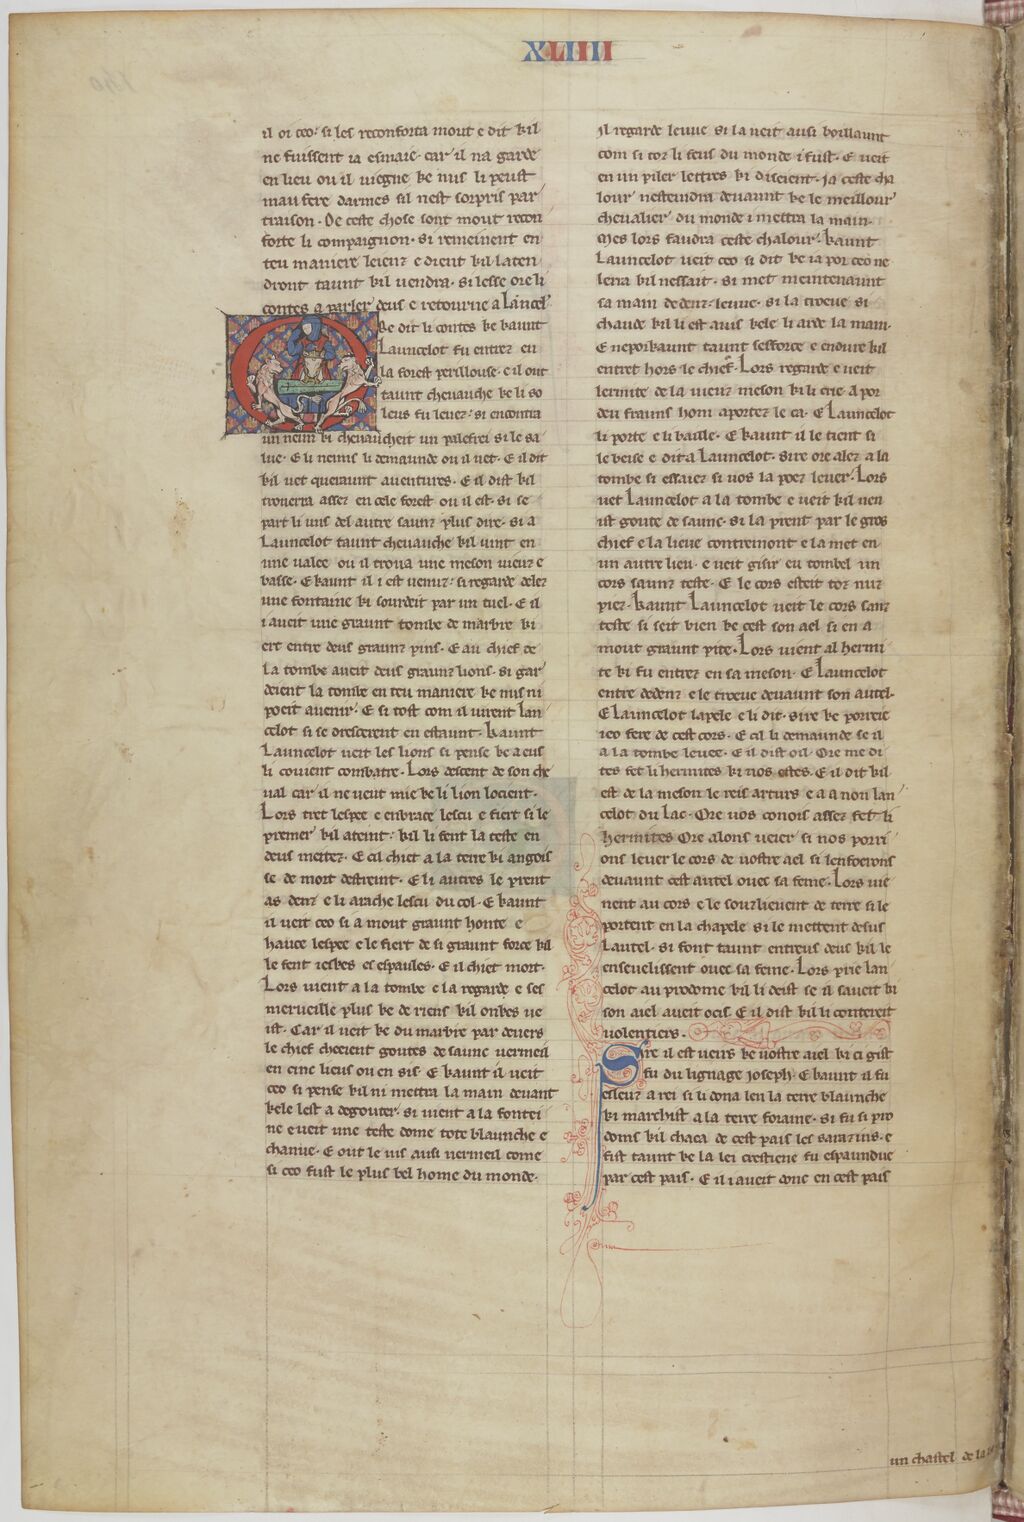 XLIIII
il oi ceo· si les reconforta mout e dit kil
ne fuissent ia esmaie· car il na garde
en lieu ou il viegne ke nus li peust
mau fere darmes sil nest sorpris par
traison· De ceste chose sont mout recon
forte li compaignon· si remeinent en
teu maniere leienz e dient kil laten
dront taunt kil vendra· si lesse ore li
contes a parler deus e retourne a Lancel'
Ore dit li contes ke kaunt
Launcelot fu entrez en
la forest perillouse· e il out
taunt chevauche ke li so
leus fu levez· si encontra
un neim ki chevaucheit un palefrei si le sa
lue· E li neims li demaunde ou il vet· E il dit
kil vet querauut aventures· E il dist kil
trovera assez en cele forest ou il est· si se
part li uns del autre saunz plus dire· si a
Launcelot taunt chevauche kil vint en
une valee ou il trova une meson vieuz e
basse· E kaunt il i est venuz· si regarde delez
une fontaine ki sourdeit par un tuel· E il
i aveit une graunt tombe de marbre ki
ert entre deus graunz pins· E au chief de
la tombe aveit deus graunz lions· si gar
deient la tombe en teu maniere ke nus ni
poeit avenir· E si tost com il virent Lan
celot si se drescerent en estaunt· kaunt
Launcelot veit les lions si pense ke a eus
li covient combatre· Lors descent de son che
val car il ne veut mie ke li lion locient·
Lors tret lespee e enbrace lescu e fiert si le
premer kil ateint· kil li fent la teste en
deus meitez· E cil chiet a la terre ki angois
se de mort destreint· E li autres le prent
as denz e li arache lescu du col· E kaunt
il veit ceo si a mout graunt honte e
hauce lespee e le fiert de si graunt force kil
le fent ieskes es espaules· E il chiet mort·
Lors vient a la tombe e la regarde e ses
merveille plus ke de riens kil onkes ve
ist· Car il veit ke du marbre par devers
le chief cheeient goutes de saunc vermeil
en cinc lieus ou en sis· E kaunt il veit
ceo si pense kil ni mettra la main devant
kele lest a degouter· si vient a la fontei
ne e veit une teste dome tote blaunche e
chanue· E out le vis ausi vermeil come
si ceo fust le plus bel home du monde·
Il regarde leuue si la veit ausi boillaunt
com si toz li feus du monde i fust· E veit
en un piler lettres ki diseient· Ja ceste cha
lour nesteindra devaunt ke le meillour
chevalier du monde i mettra la main·
Mes lors faudra ceste chalour· kaunt
Launcelot veit ceo si dit ke ia por ceo ne
lerra kil nessait· si met meintenaunt
sa main dedenz leuue· si la troeve si
chaude kil li est avis kele li arde la main·
E neporkaunt taunt sefforce e endure kil
entret hors le chief· Lors regarde e veit
lermite de la vieuz meson ki li crie· a por
deu frauns hom aportez le ca· E Launcelot
li porte e li baille· E kaunt il le tient si
le beise e dit a Launcelot· Sire ore alez a la
tombe si essaiez si vos la poez lever· Lors
vet Launcelot a la tombe e veit kil nen
ist goute de saunc· si la prent par le gros
chief e la lieve contremont e la met en
un autre lieu· e veit gisir eu tombel un
cors saunz teste· E le cors esteit toz nuz
piez· kaunt Launcelot veit le cors sanz
teste si seit bien ke cest son ael si en a
mout graunt pite· Lors vient al hermi
te ki fu entrez en sa meson· E Launcelot
entre dedenz e le troeve devaunt son autel·
E Launcelot lapele e li dit· sire ke porreie
ieo fere de cest cors· E cil li demaunde se il
a la tombe levee· E il dist oil· Ore me di
tes fet li hermites ki vos estes· E il dit kil
est de la meson le reis arturs e a a non lan
celot du Lac· Ore vos conois assez fet li
hermites Ore alons veier si nos porri
ons lever le cors de vostre ael si lenfoerons
devaunt cest autel ovec sa feme· Lors vie
nent au cors e le souzlievent de terre si le
portent en la chapele si le mettent desus
Lautel· si font taunt entreus deus kil le
ensevelissent ovec sa feme· Lors prie lan
celot au prodome kil li deist se il saveit ki
son aiel aveit ocis· E il dist kil li contereit
volentiers·
Sire il est veirs ke vostre aiel ki ci gist
fu du lignage Joseph· E kaunt il fu
esleuz a rei si li dona len la terre blaunche
ki marchist a la terre foraine· si fu si pro
doms kil chaca de cest pais les sarazins· e
fist taunt ke la lei crestiene fu espaundue
par cest pais· E il i aveit donc en cest pais
un chastel de la